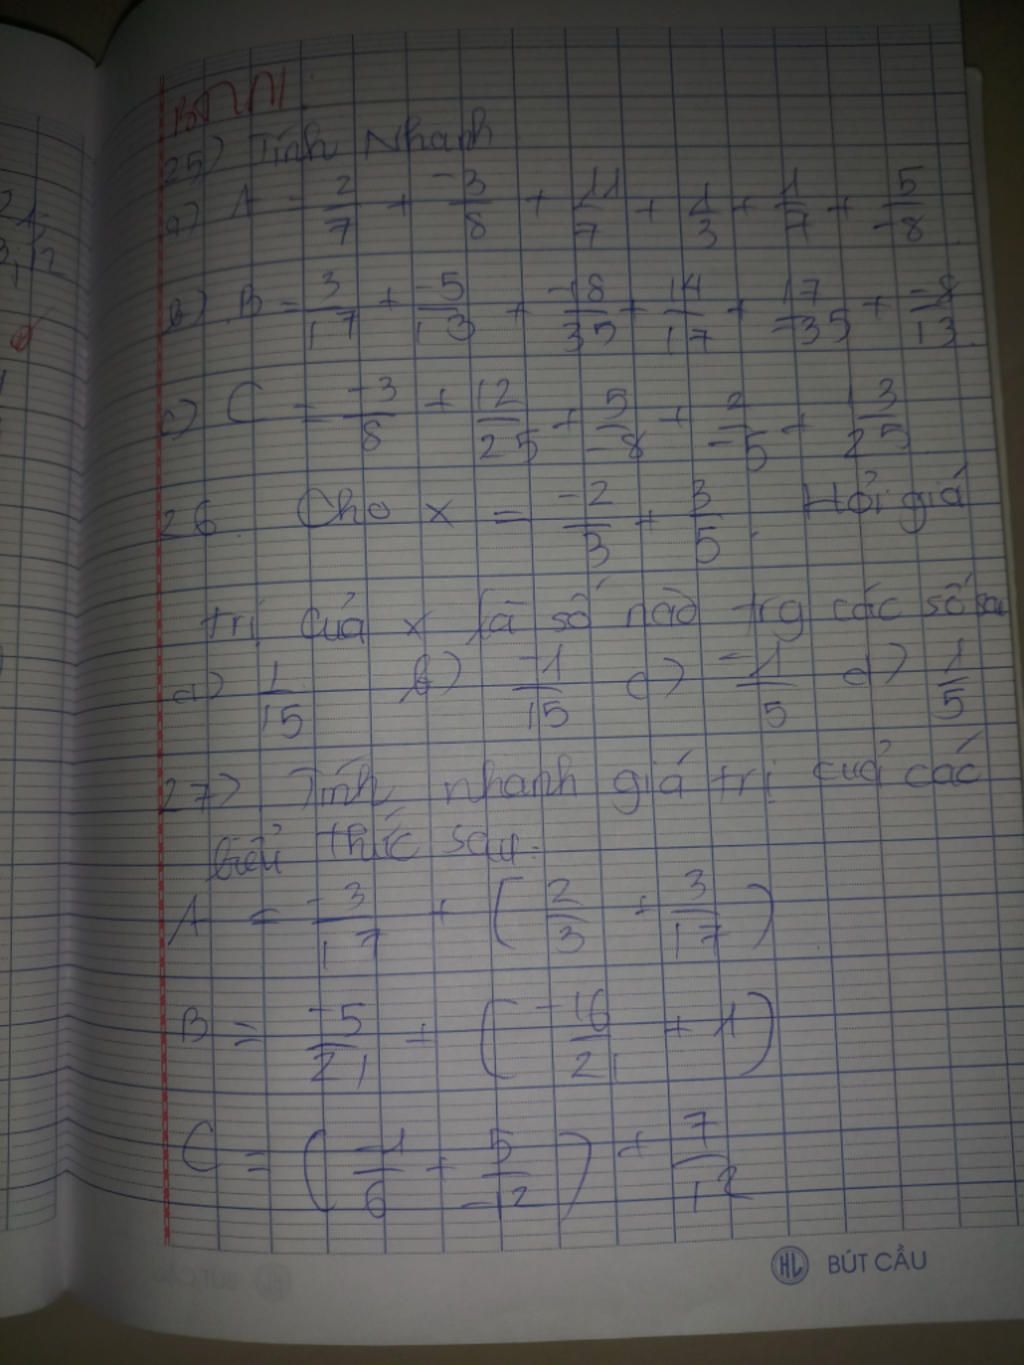 BTVN
25) Tính Nhanh
a) A = 2/7 + -3/8 + 11/7 + 1/3 + 1/7 + 5/-8
b) B = 3/17 + -5/13 + -18/35 + 14/17 + 17/-35 + -8/13
c) C = -3/8 + 12/25 + 5/-8 + 2/-5 + 13/25
26 Cho x = -2/3 + 3/5. Hỏi giá
trị của x là số nào trg các số sau
a) 1/15 b) -1/15 c) -1/5 d) 1/5
27) Tính nhanh giá trị của các
biểu thức sau.
A = -3/17 + (2/3 + 3/17)
B = -5/21 + (-16/21 + 1)
C = (-1/6 + 5/-12) + 7/12
HL BÚT CẦU